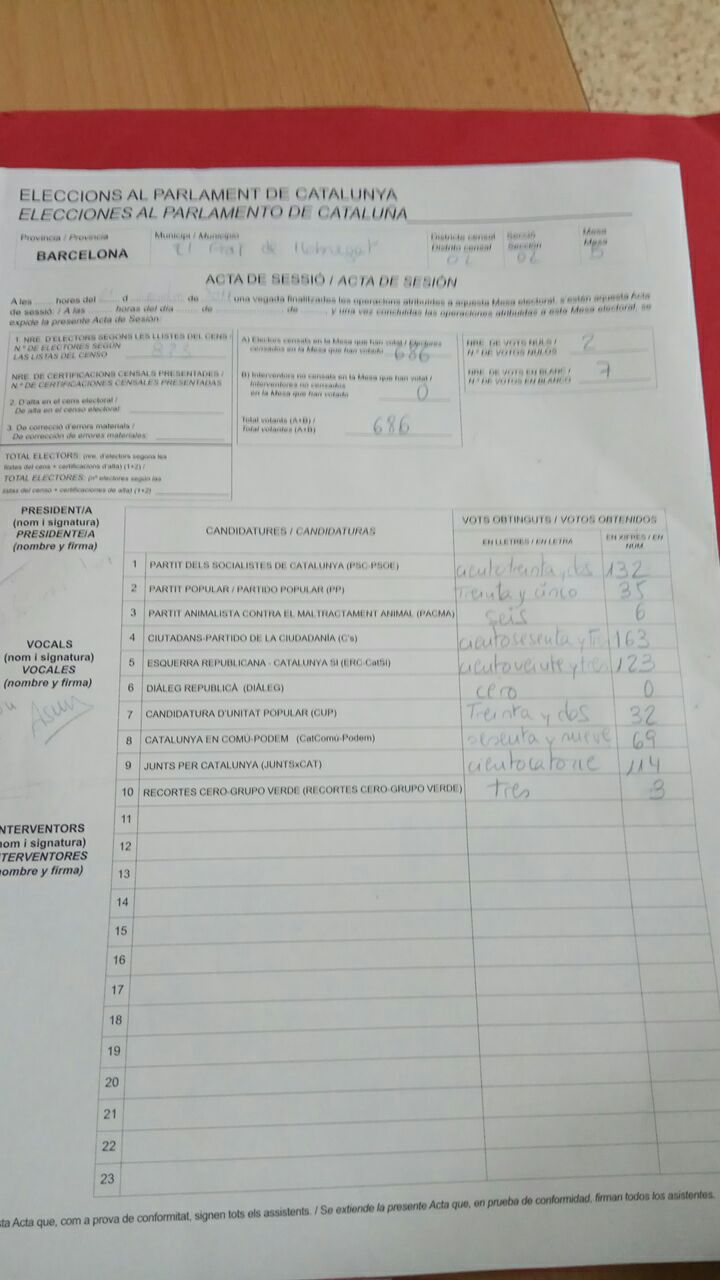 ELECCIONS AL PARLAMENT DE CATALUNYA
ELECCIONES AL PARLAMENTO DE CATALUÑA
Província / Provincia
BARCELONA
Municipi / Municipio
El Prat de Llobregat
Districte censal
Distrito censal
02
Secció
Sección
02
Mesa
Mesa
B
ACTA DE SESSIÓ / ACTA DE SESIÓN
A les ...... hores del ... d ... de ... una vegada finalitzades les operacions atribuïdes a aquesta Mesa electoral, s'estén aquesta Acta
de sessió. / A las ...... horas del día ...... de ...... de ...... y una vez concluidas las operaciones atribuidas a esta Mesa electoral, se
expide la presente Acta de Sesión.
1. NRE. D'ELECTORS SEGONS LES LLISTES DEL CENS /
N.º DE ELECTORES SEGÚN
LAS LISTAS DEL CENSO
NRE. DE CERTIFICACIONS CENSALS PRESENTADES /
N.º DE CERTIFICACIONES CENSALES PRESENTADAS
2. D'alta en el cens electoral /
De alta en el censo electoral:
3. De correcció d'errors materials /
De corrección de errores materiales:
TOTAL ELECTORS: (nre. d'electors segons les
llistes del cens + certificacions d'alta) (1+2) /
TOTAL ELECTORES: (nº electores según las
listas del censo + certificaciones de alta) (1+2)
A) Electors censats en la Mesa que han votat / Electores
censados en la Mesa que han votado 686
B) Interventors no censats en la Mesa que han votat /
Interventores no censados
en la Mesa que han votado 0
Total votants (A+B) /
Total votantes (A+B) 686
NRE. DE VOTS NULS /
N.º DE VOTOS NULOS 2
NRE. DE VOTS EN BLANC /
N.º DE VOTOS EN BLANCO 7
PRESIDENT/A
(nom i signatura)
PRESIDENTE/A
(nombre y firma)
VOCALS
(nom i signatura)
VOCALES
(nombre y firma)
NTERVENTORS
nom i signatura)
TERVENTORES
ombre y firma)
CANDIDATURES / CANDIDATURAS
VOTS OBTINGUTS / VOTOS OBTENIDOS
EN LLETRES / EN LETRA
EN XIFRES / EN NÚM.
1 PARTIT DELS SOCIALISTES DE CATALUNYA (PSC-PSOE) ciento treinta y dos 132
2 PARTIT POPULAR / PARTIDO POPULAR (PP) Treinta y cinco 35
3 PARTIT ANIMALISTA CONTRA EL MALTRACTAMENT ANIMAL (PACMA) seis 6
4 CIUTADANS-PARTIDO DE LA CIUDADANÍA (C's) ciento sesenta y tres 163
5 ESQUERRA REPUBLICANA - CATALUNYA SÍ (ERC-CatSí) ciento veinte y tres 123
6 DIÀLEG REPUBLICÀ (DIÀLEG) cero 0
7 CANDIDATURA D'UNITAT POPULAR (CUP) Treinta y dos 32
8 CATALUNYA EN COMÚ-PODEM (CatComú-Podem) sesenta y nueve 69
9 JUNTS PER CATALUNYA (JUNTSxCAT) ciento catorce 114
10 RECORTES CERO-GRUPO VERDE (RECORTES CERO-GRUPO VERDE) tres 3
11
12
13
14
15
16
17
18
19
20
21
22
23
ta Acta que, com a prova de conformitat, signen tots els assistents. / Se extiende la presente Acta que, en prueba de conformidad, firman todos los asistentes.